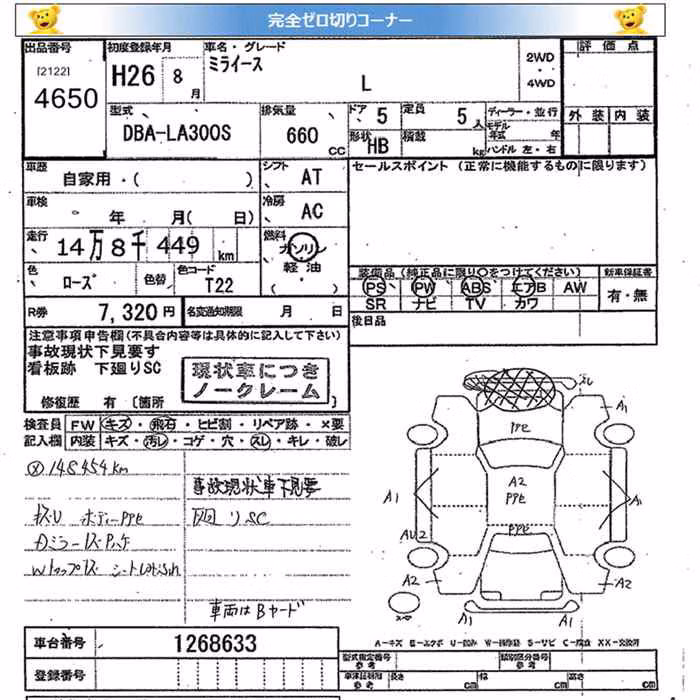 完全ゼロ切りコーナー
出品番号
[2122]
4650
初度登録年月
H26 8月
車名・グレード
ミライース
L
2WD
4WD
評価点
外装 内装
型式
DBA-LA300S
排気量
660 CC
ドア 5
定員 5人
形状 HB
積載 kg
ディーラー・並行
モデル年式 年
ハンドル 左・右
車歴
自家用・( )
シフト AT
セールスポイント (正常に機能するものに限ります)
車検
年 月( 日)
冷房 AC
走行
14万8千449km
燃料
ガソリン
軽油
( ・ )
色
ローズ
色替
色コード
T22
装備品(純正品に限り○をつけてください)
PS PW ABS エアB AW
SR ナビ TV カワ
新車保証書
有・無
R券 7,320円
名変通知期限 月 日
後日品
注意事項申告欄(不具合内容等は具体的に記入して下さい)
事故現状下見要す
看板跡 下廻りSC
現状車につき
ノークレーム
修復歴 有 〔箇所 〕
検査員
記入欄
FW キズ・飛石・ヒビ割・リペア跡・×要
内装 キズ・汚レ・コゲ・穴・スレ・キレ・破レ
148454km
事故現状車下見要
下廻りSC
車両はBヤード
PPE
A1
A2
PPE
A1
A1
AU2
PPE
A2
A2
A1
A1
A-キズ E-エクボ U-凹み W-補修跡 S-サビ C-腐食 XX-交換済
車台番号 1268633
登録番号
型式指定番号
参考
類別区分番号
参考
車体証明用
参考
長さ cm
幅 cm
高さ cm